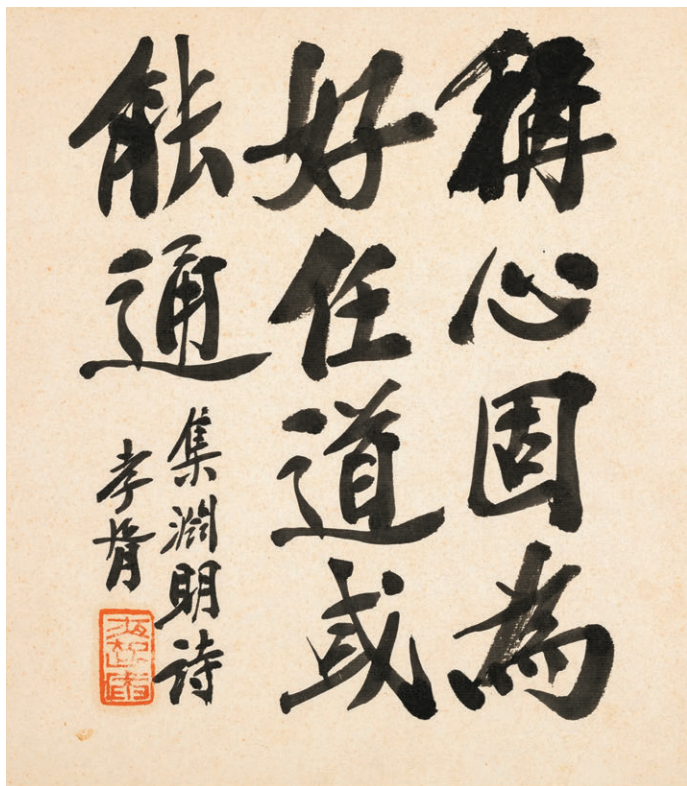 稱心固為
好任道或
能通
集淵明詩
孝胥
夜起庵